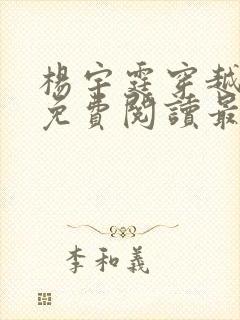 楊宇霆穿越
免費閱讀最
李和義